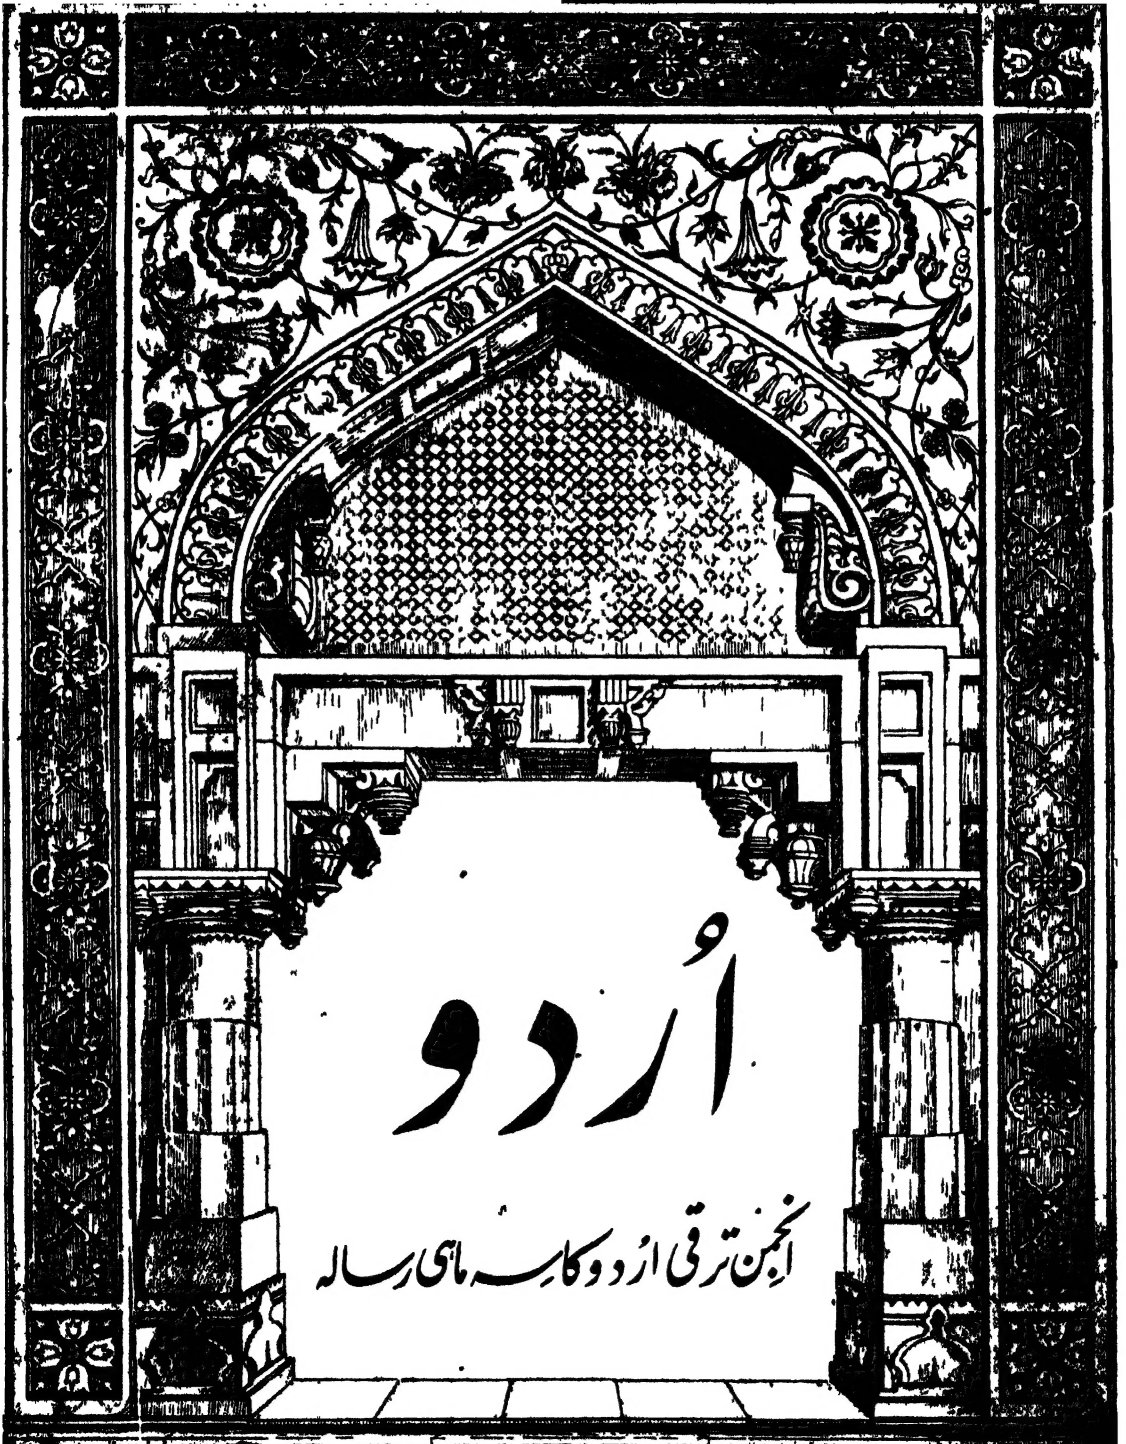 اُردو
انجمن ترقی اُردو کا سہ ماہی رسالہ